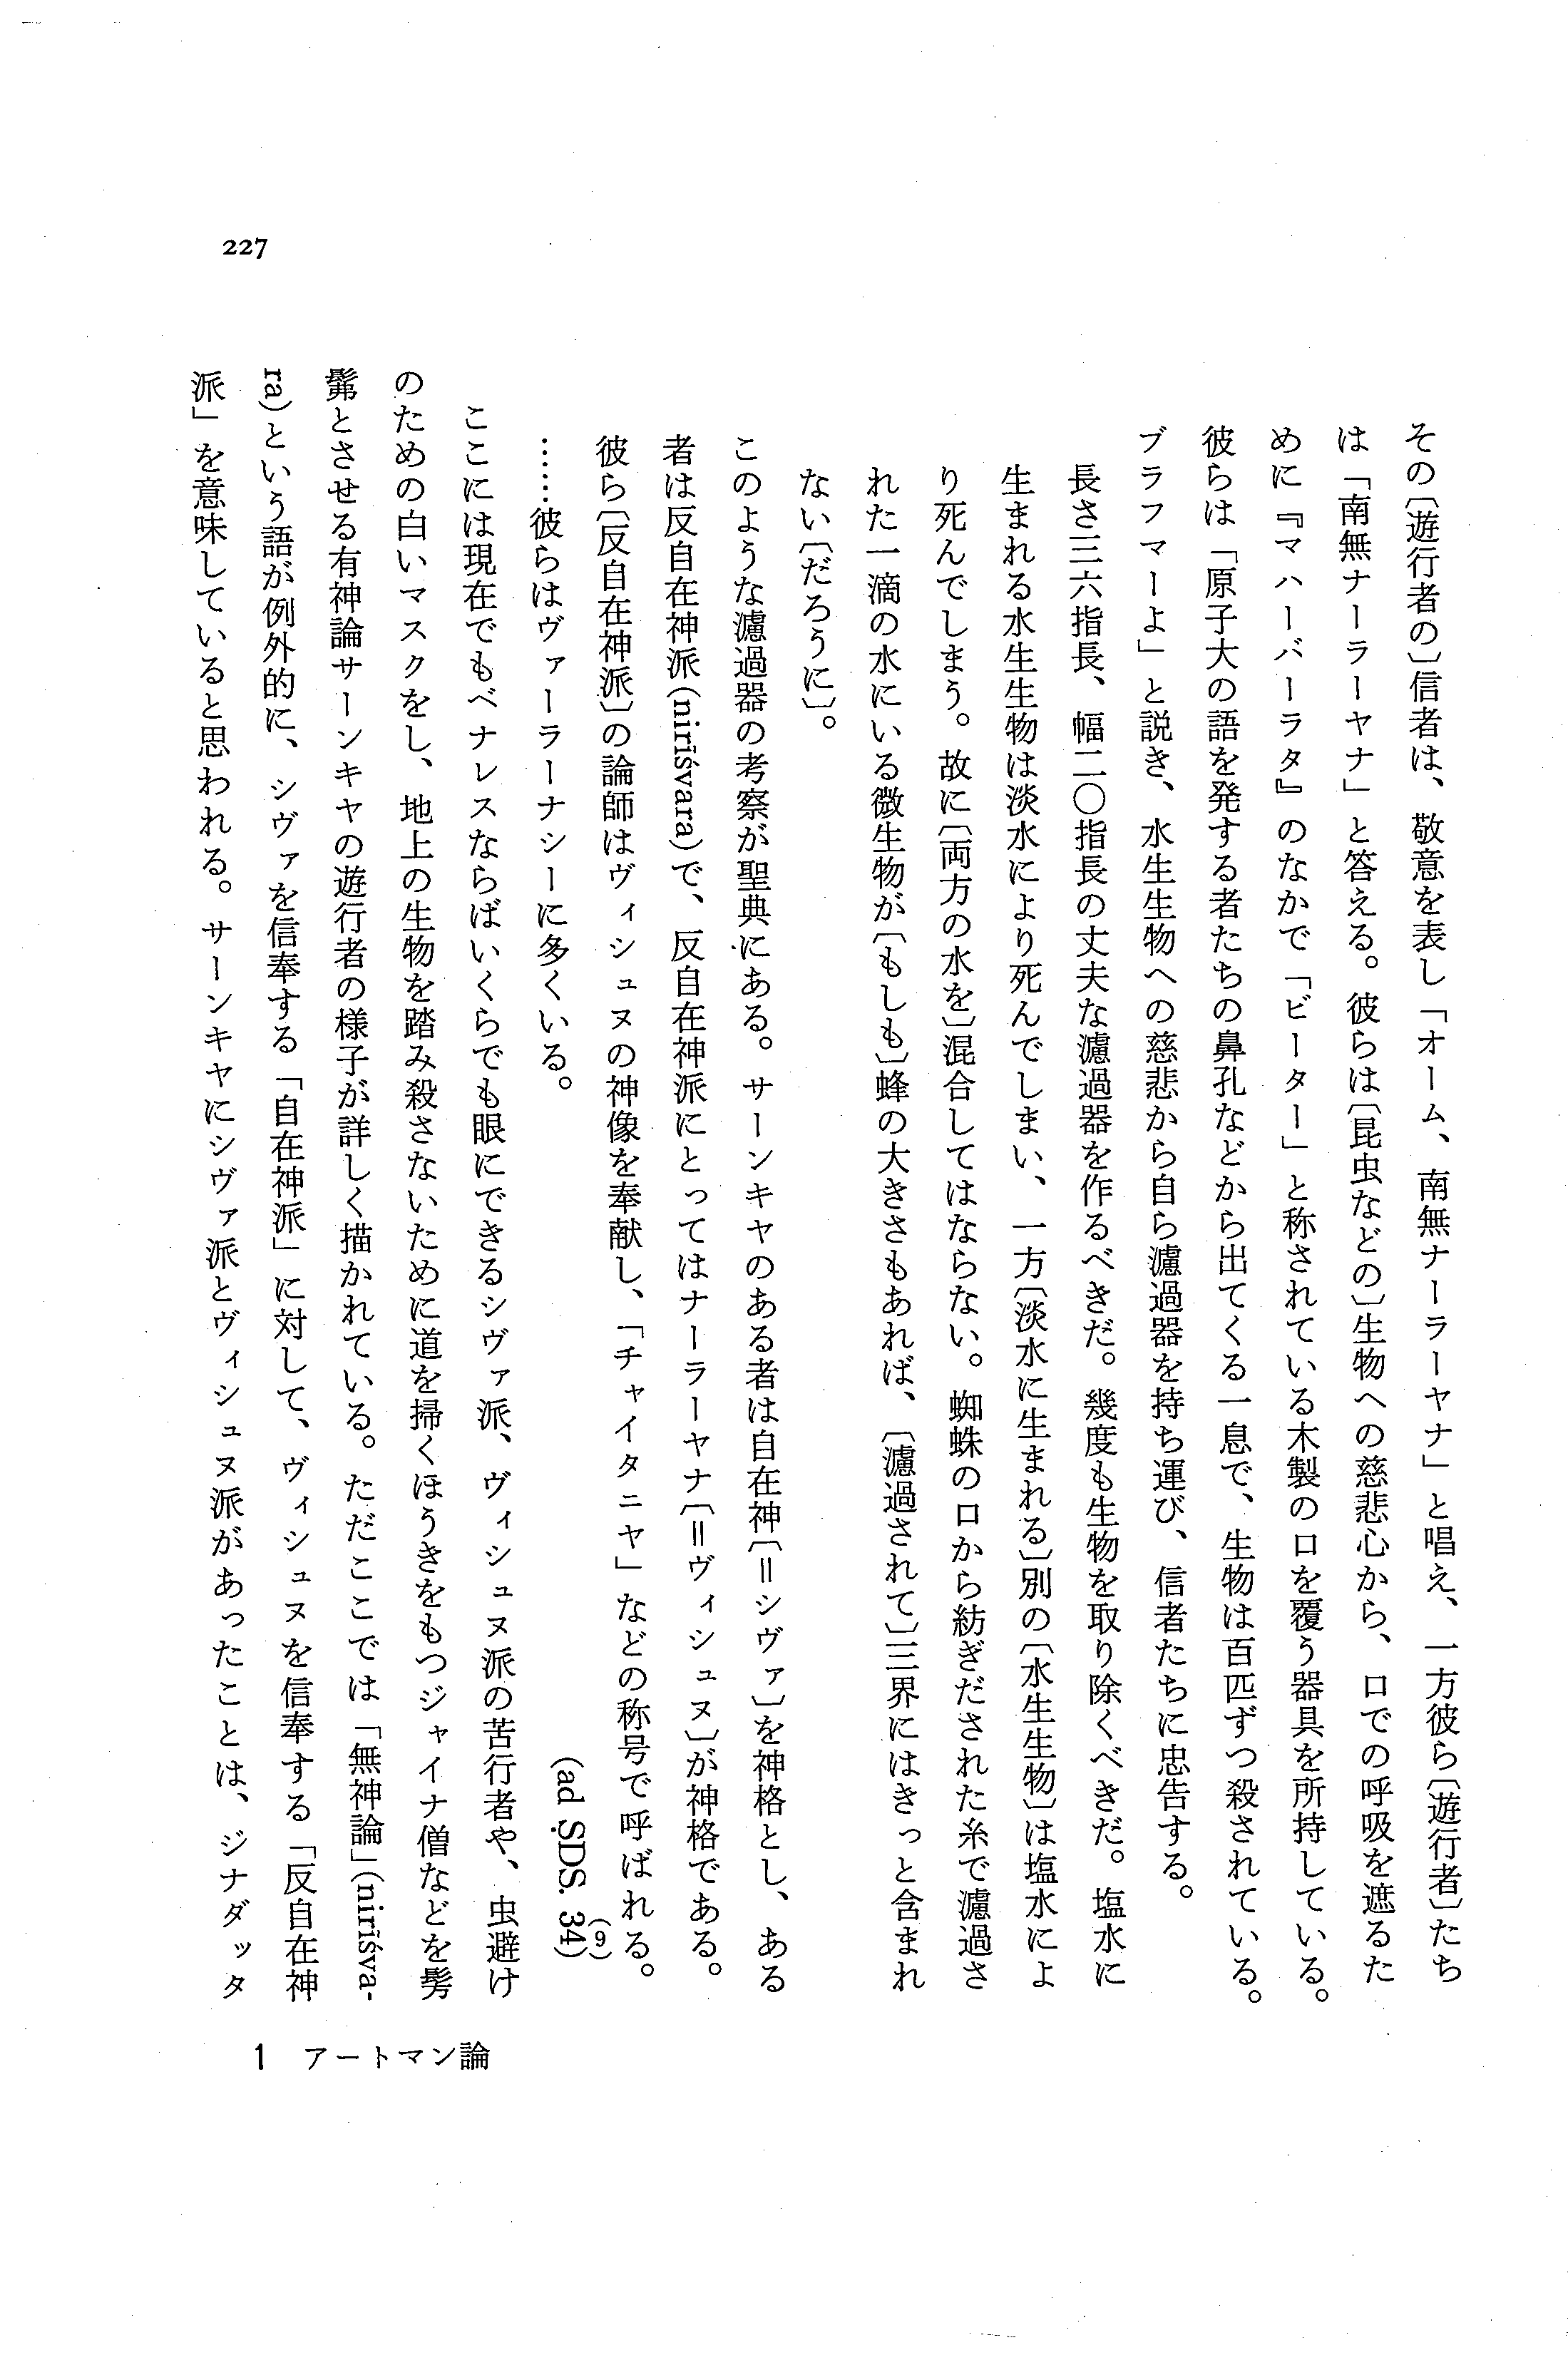 227
その〔遊行者の〕信者は、敬意を表し「オーム、南無ナーラーヤナ」と唱え、一方彼ら〔遊行者〕たち
は「南無ナーラーヤナ」と答える。彼らは〔昆虫などの〕生物への慈悲心から、口での呼吸を遮るた
めに『マハーバーラタ』のなかで「ビーター」と称されている木製の口を覆う器具を所持している。
彼らは「原子大の語を発する者たちの鼻孔などから出てくる一息で、生物は百匹ずつ殺されている。
ブラフマーよ」と説き、水生生物への慈悲から自ら濾過器を持ち運び、信者たちに忠告する。
長さ三六指長、幅二〇指長の丈夫な濾過器を作るべきだ。幾度も生物を取り除くべきだ。塩水に
生まれる水生生物は淡水により死んでしまい、一方〔淡水に生まれる〕別の〔水生生物〕は塩水によ
り死んでしまう。故に〔両方の水を〕混合してはならない。蜘蛛の口から紡ぎだされた糸で濾過さ
れた一滴の水にいる微生物が〔もしも〕蜂の大きさもあれば、〔濾過されて〕三界にはきっと含まれ
ない〔だろうに〕。
このような濾過器の考察が聖典にある。サーンキヤのある者は自在神〔＝シヴァ〕を神格とし、ある
者は反自在神派(nirīśvara)で、反自在神派にとってはナーラーヤナ〔＝ヴィシュヌ〕が神格である。
彼ら〔反自在神派〕の論師はヴィシュヌの神像を奉献し、「チャイタニヤ」などの称号で呼ばれる。
……彼らはヴァーラーナシーに多くいる。
(ad ṢDS. 34)(9)
ここには現在でもベナレスならばいくらでも眼にできるシヴァ派、ヴィシュヌ派の苦行者や、虫避け
のための白いマスクをし、地上の生物を踏み殺さないために道を掃くほうきをもつジャイナ僧などを髣
髴とさせる有神論サーンキヤの遊行者の様子が詳しく描かれている。ただここでは「無神論」(nirīśva-
ra)という語が例外的に、シヴァを信奉する「自在神派」に対して、ヴィシュヌを信奉する「反自在神
派」を意味していると思われる。サーンキヤにシヴァ派とヴィシュヌ派があったことは、ジナダッタ
1 アートマン論